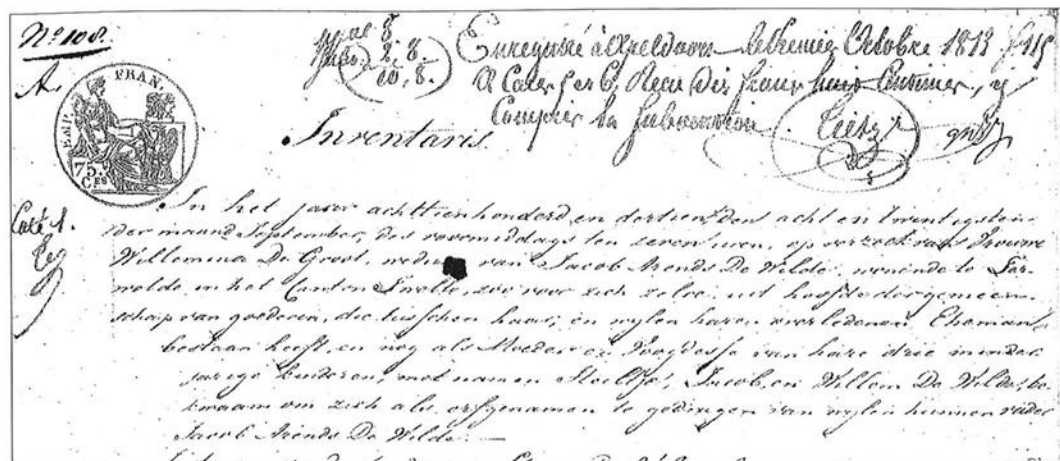 No 108.
A.
FRAN.
EMP.
75.
Ces
8
2. 8.
10. 8.
Enregistré à Apeldoorn le premier Octobre 1813 fo 115
Ro Case 5 et 6, Reçu dix francs huit centimes, y
Compris la Subvention
Inventaris
Cote 1.
In het jaar achttienhonderd en dertien, den acht en twintigsten
der maand September, des voormiddags ten zeven uren, op verzoek van Vrouwe
Willemina De Groot, weduwe van Jacob Arends De Wilde, wonende te
in het Canton zoo voor zich zelve uit hoofde der gemeen-
schap van goederen, die tusschen haar, en wylen haren overledenen Eheman
bestaan heeft, en nog als Moeder en Voogdesse van hare drie minder-
jarige kinderen, met namen Jacob, en Willem De Wilde, be-
kwaam om zich als erfgenamen te gedragen van wylen hunnen vader
Jacob Arends De Wilde.